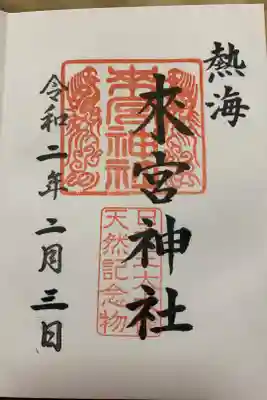 熱海
來宮神社
來宮神社
天然記念物
令和二年二月三日